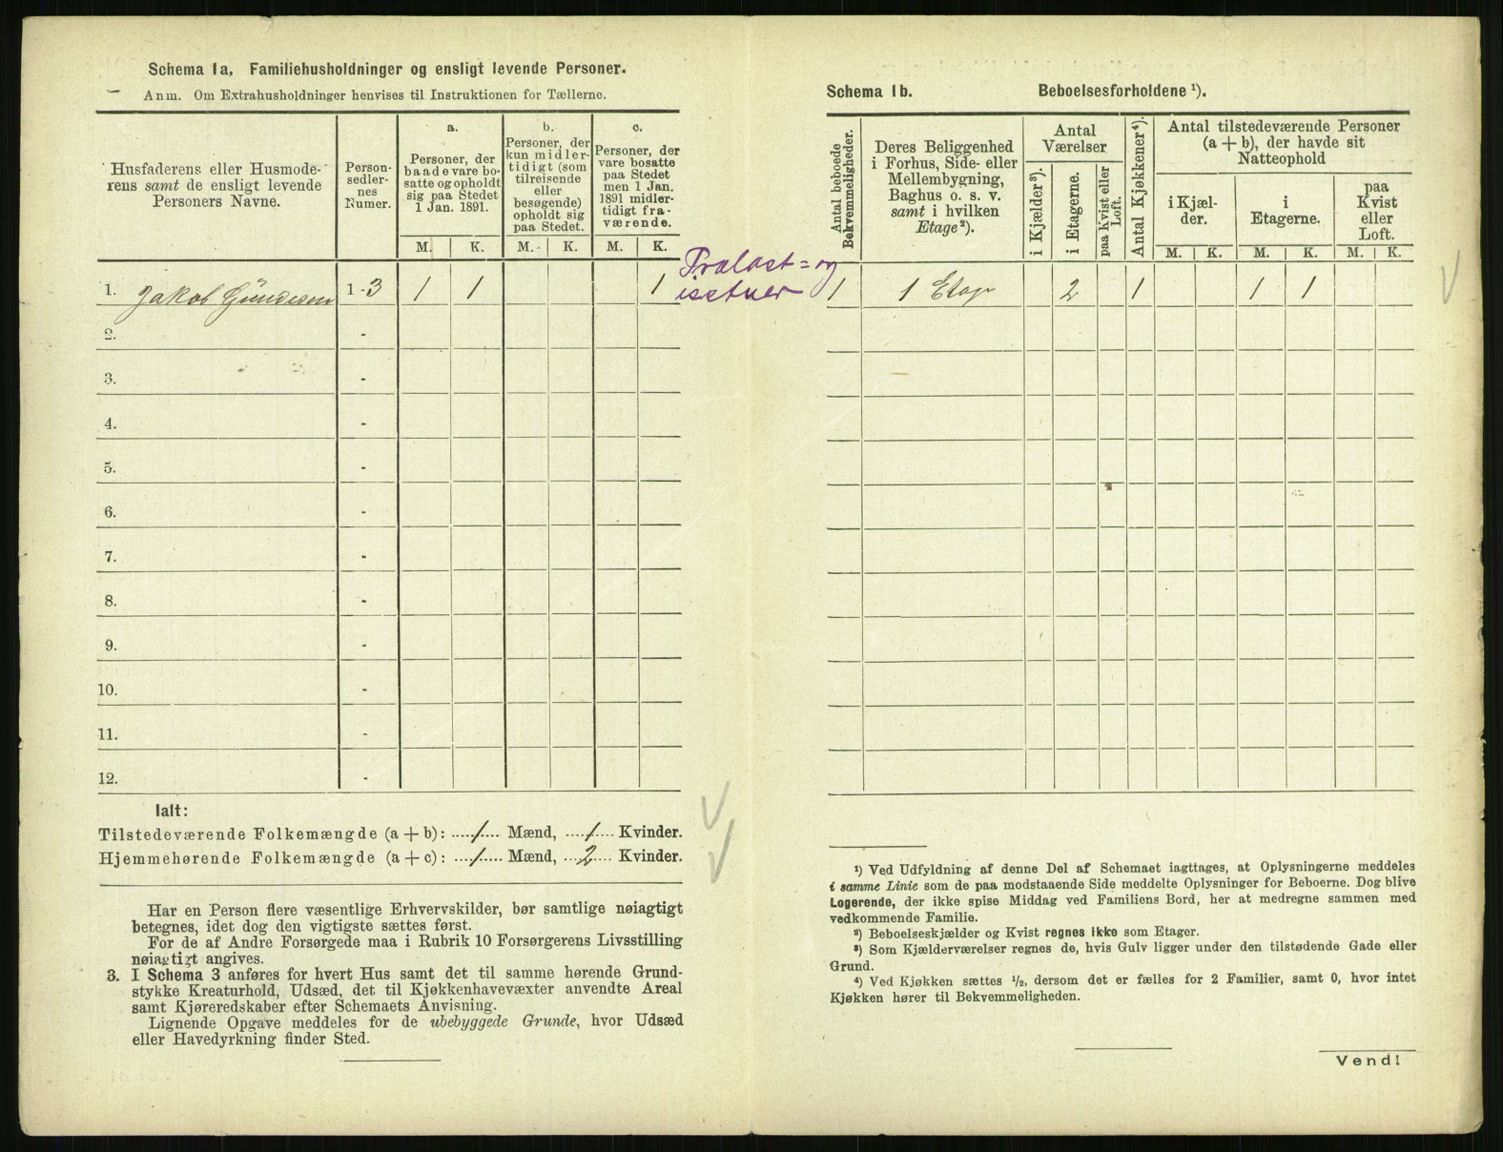 Schema 1a, Familiehusholdninger og ensligt levende Personer.
Anm. Om Extrahusholdninger henvises til Instruktionen for Tællerne.
Husfaderens eller Husmode-
rens samt de ensligt levende
Personers Navne.
Person-
sedler-
nes
Numer.
a.
Personer, der
baade vare bo-
satte og opholdt
sig paa Stedet
1 Jan. 1891.
b.
Personer, der
kun midler-
tidigt (som
tilreisende
eller
besøgende)
opholdt sig
paa Stedet.
c.
Personer, der
vare bosatte
paa Stedet
men 1 Jan.
1891 midler-
tidigt fra-
værende.
M. K. M. K. M. K.
1. Jakob Gündersen 1-3 1 1 1
2. -
3. -
4. -
5. -
6. -
7. -
8. -
9. -
10. -
11. -
12. -
Ialt:
Tilstedeværende Folkemængde (a + b): 1 Mænd, 1 Kvinder.
Hjemmehørende Folkemængde (a + c): 1 Mænd, 2 Kvinder.
Har en Person flere væsentlige Erhvervskilder, bør samtlige nøiagtigt
betegnes, idet dog den vigtigste sættes først.
For de af Andre Forsørgede maa i Rubrik 10 Forsørgerens Livsstilling
nøiagtigt angives.
3. I Schema 3 anføres for hvert Hus samt det til samme hørende Grund-
stykke Kreaturhold, Udsæd, det til Kjøkkenhavevæxter anvendte Areal
samt Kjøreredskaber efter Schemaets Anvisning.
Lignende Opgave meddeles for de ubebyggede Grunde, hvor Udsæd
eller Havedyrkning finder Sted.
Schema 1b. Beboelsesforholdene ¹).
Antal beboede
Bekvemmeligheder.
Deres Beliggenhed
i Forhus, Side- eller
Mellembygning,
Baghus o. s. v.
samt i hvilken
Etage²).
Antal
Værelser
i Kjælder³).
i Etagerne.
paa Kvist eller
Loft.
Antal Kjøkkener⁴).
Antal tilstedeværende Personer
(a + b), der havde sit
Natteophold
i Kjæl-
der.
i
Etagerne.
paa
Kvist
eller
Loft.
M. K. M. K. M. K.
1 1 Etage 2 1 1 1
¹) Ved Udfyldning af denne Del af Schemaet iagttages, at Oplysningerne meddeles
i samme Linie som de paa modstaaende Side meddelte Oplysninger for Beboerne. Dog blive
Logerende, der ikke spise Middag ved Familiens Bord, her at medregne sammen med
vedkommende Familie.
²) Beboelseskjælder og Kvist regnes ikke som Etager.
³) Som Kjælderværelser regnes de, hvis Gulv ligger under den tilstødende Gade eller
Grund.
⁴) Ved Kjøkken sættes ½, dersom det er fælles for 2 Familier, samt 0, hvor intet
Kjøkken hører til Bekvemmeligheden.
Vend!